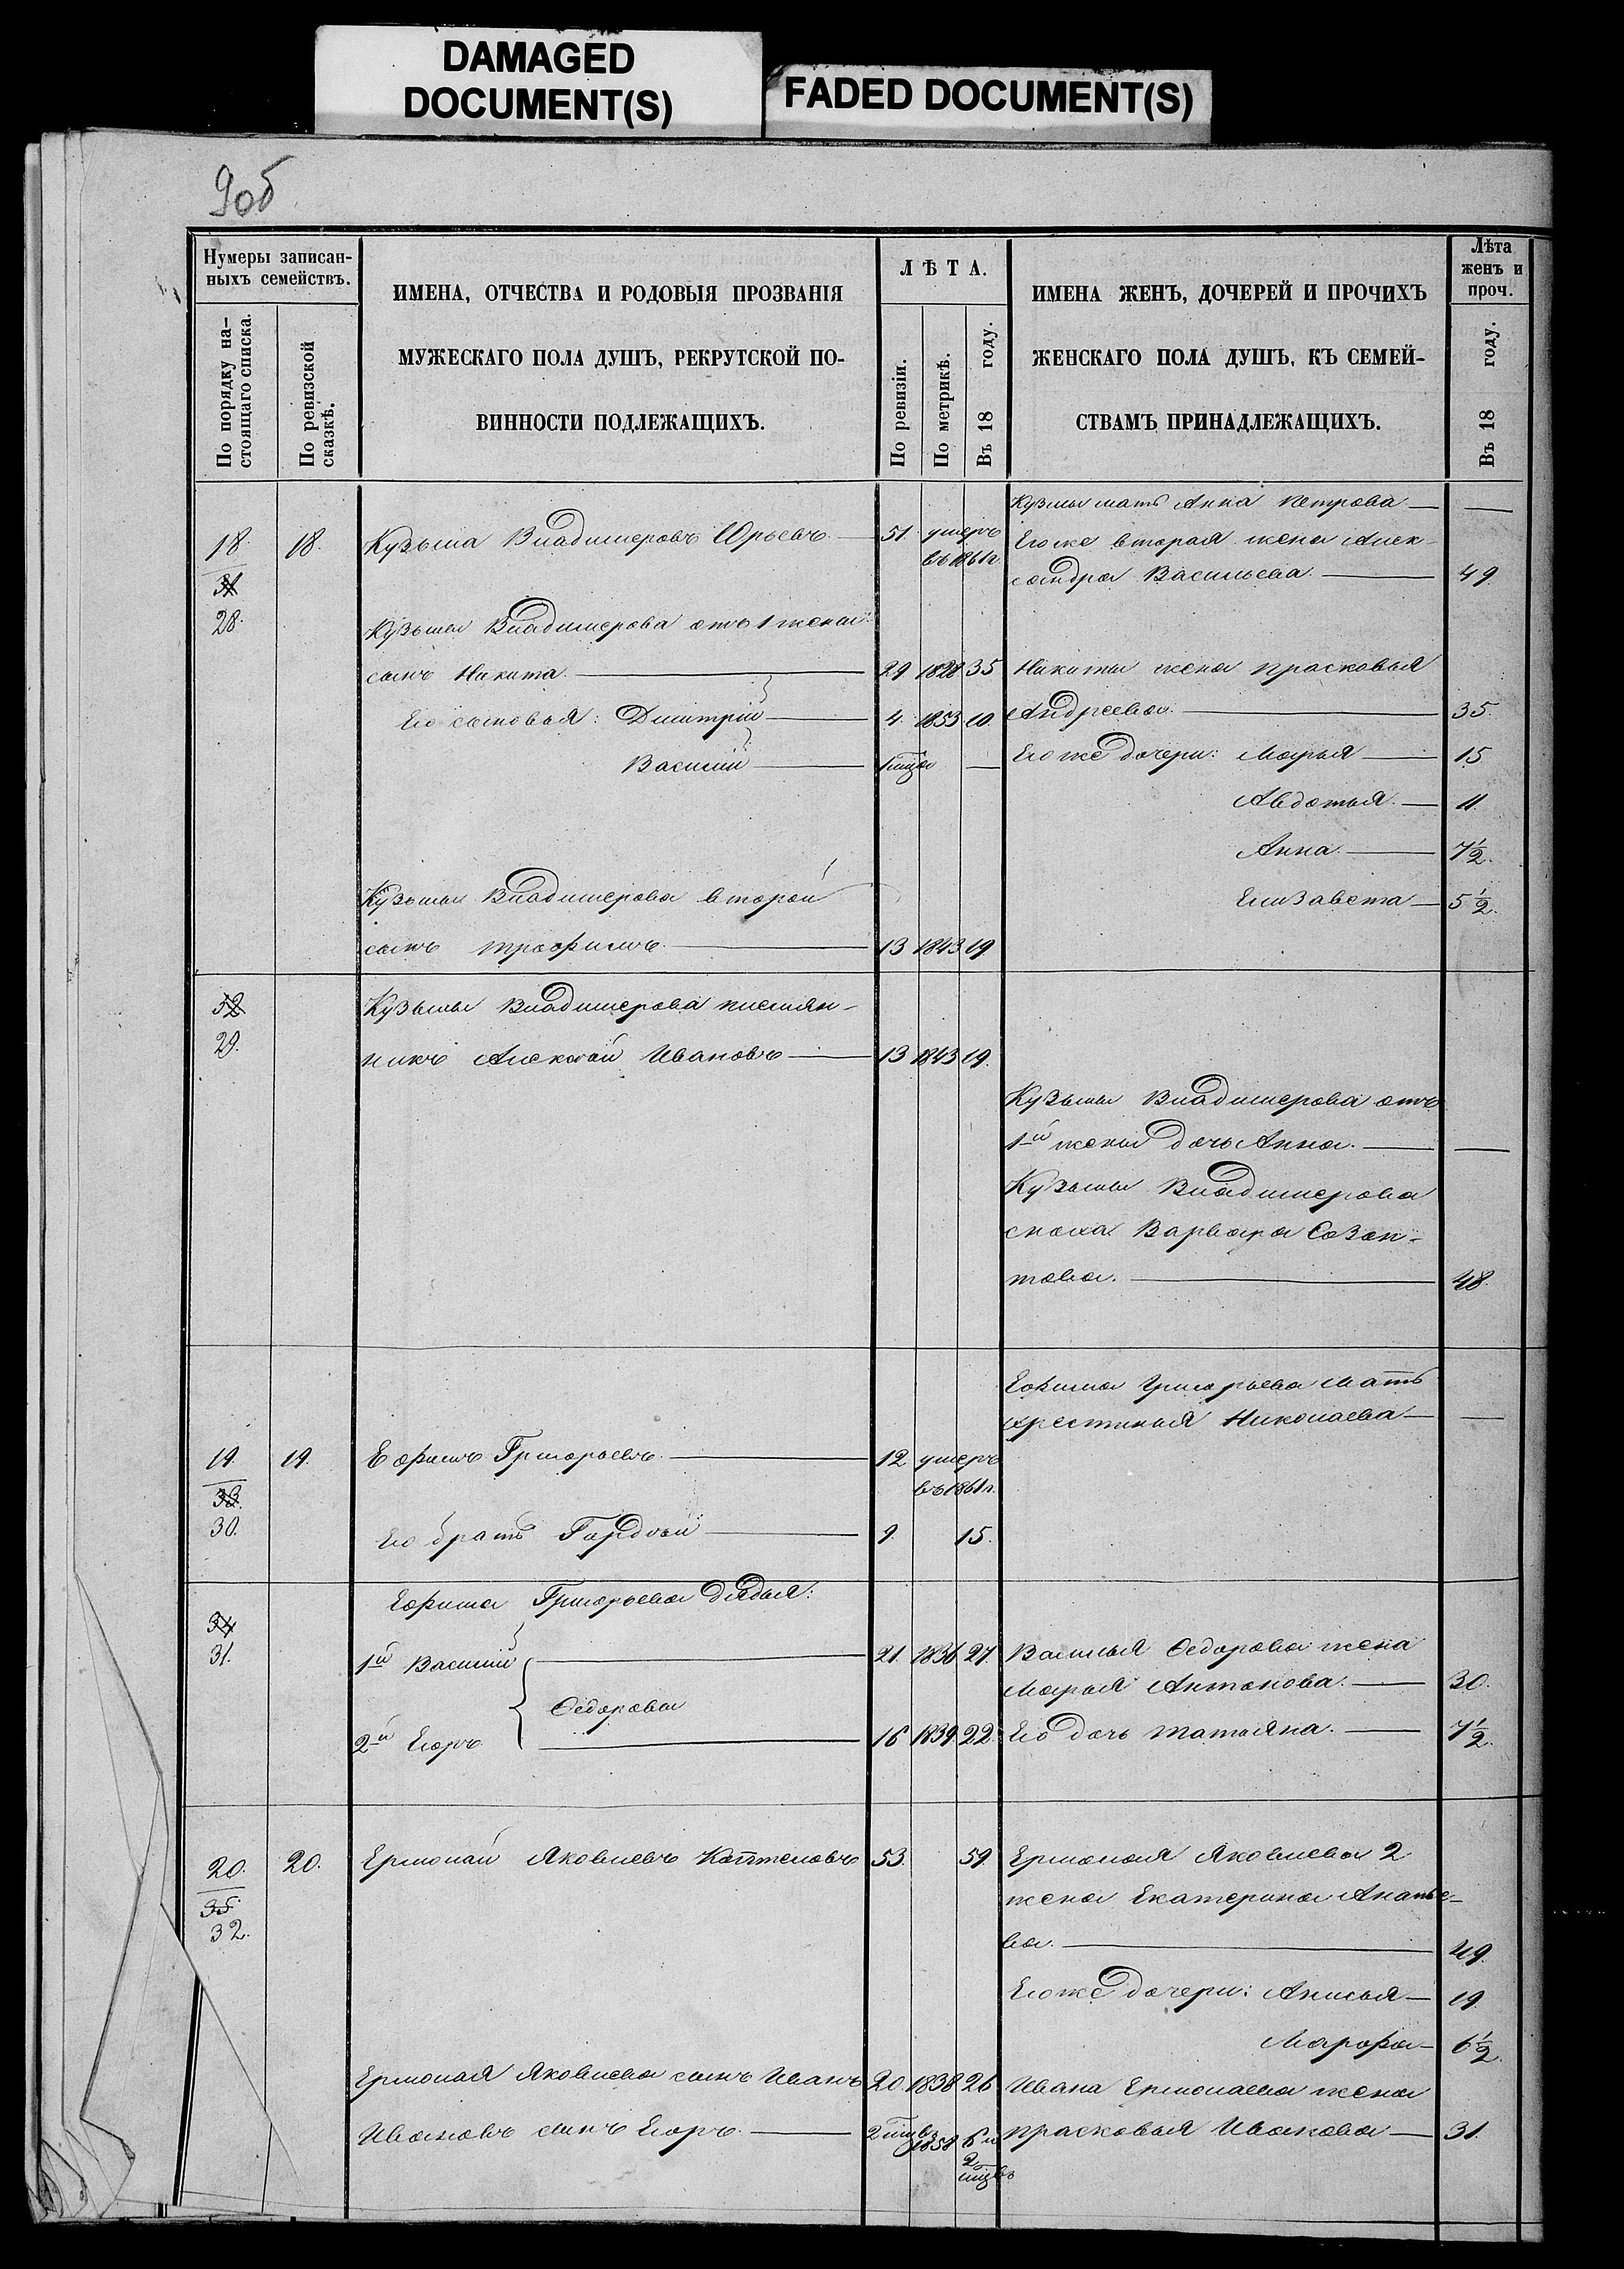 DAMAGED
DOCUMENT(S)
FADED DOCUMENT(S)
9об
Нумеры записан-
ныхъ семействъ.
По порядку на-
стоящаго списка.
По ревизской
сказкѣ.
ИМЕНА, ОТЧЕСТВА И РОДОВЫЯ ПРОЗВАНІЯ
МУЖЕСКАГО ПОЛА ДУШЪ, РЕКРУТСКОЙ ПО-
ВИННОСТИ ПОДЛЕЖАЩИХЪ.
ЛѢТА.
По ревизіи.
По метрикѣ.
Въ 18 году.
ИМЕНА ЖЕНЪ, ДОЧЕРЕЙ И ПРОЧИХЪ
ЖЕНСКАГО ПОЛА ДУШЪ, КЪ СЕМЕЙ-
СТВАМЪ ПРИНАДЛЕЖАЩИХЪ.
Лѣта
женъ и
проч.
Въ 18 году.
Кузмы мать Анна Петрова — —
18. 18. Кузьма Владимеровъ Юрьевъ. — 51 умеръ Его же вторая жена Алек-
въ 1861 г.
31 сандра Васильева. — 49.
28.
Кузьмы Владимерова отъ 1 жены
сынъ Никита. — 29 1828 35 Никиты жена Прасковья
Его сыновья: Дмитрій — 4. 1853 10. Андреева. — 35.
Василий — 1 мца — Его же дочери: Марья — 15
Авдотья. — 11.
Анна. — 7 1/2.
Кузьмы Владимерова второй Елизавета — 5 1/2.
сынъ Трофимъ. — 13 1843 19.
32 Кузьмы Владимерова племян-
29. никъ Алексѣй Ивановъ — 13 1843 19.
Кузьмы Владимерова отъ
1й жены дочь Анна. — —
Кузьмы Владимерова
сноха Варвара Созон-
това. — 48.
Ефима Григорьева мать
Хрестинья Николаева — —
19. 19. Ефимъ Григорьевъ. — 12 умеръ
въ 1861 г.
33.
30. Его братъ Гордѣй — 9. 15.
Ефима Григорьева дядья:
34
31. 1й Василий — 21. 1836 27. Василья Ѳедорова жена
Марья Антонова. — 30.
Ѳедоровы
2й Егоръ — 16 1839. 22. Его дочь Татьяна. — 7 1/2.
20. 20. Ермолай Яковлевъ Коптеловъ 53. 59. Ермолая Яковлева 2
35. жена Екатерина Ананье-
32. ва. — 49.
Его же дочери: Анисья — 19
Марфа — 6 1/2.
Ермолая Яковлева сынъ Иванъ 20 1838 26 Ивана Ермолаева жена
Ивановъ сынъ Егоръ. — 2 мцвъ 1858 6 и Прасковья Иванова — 31.
2
мцвъ